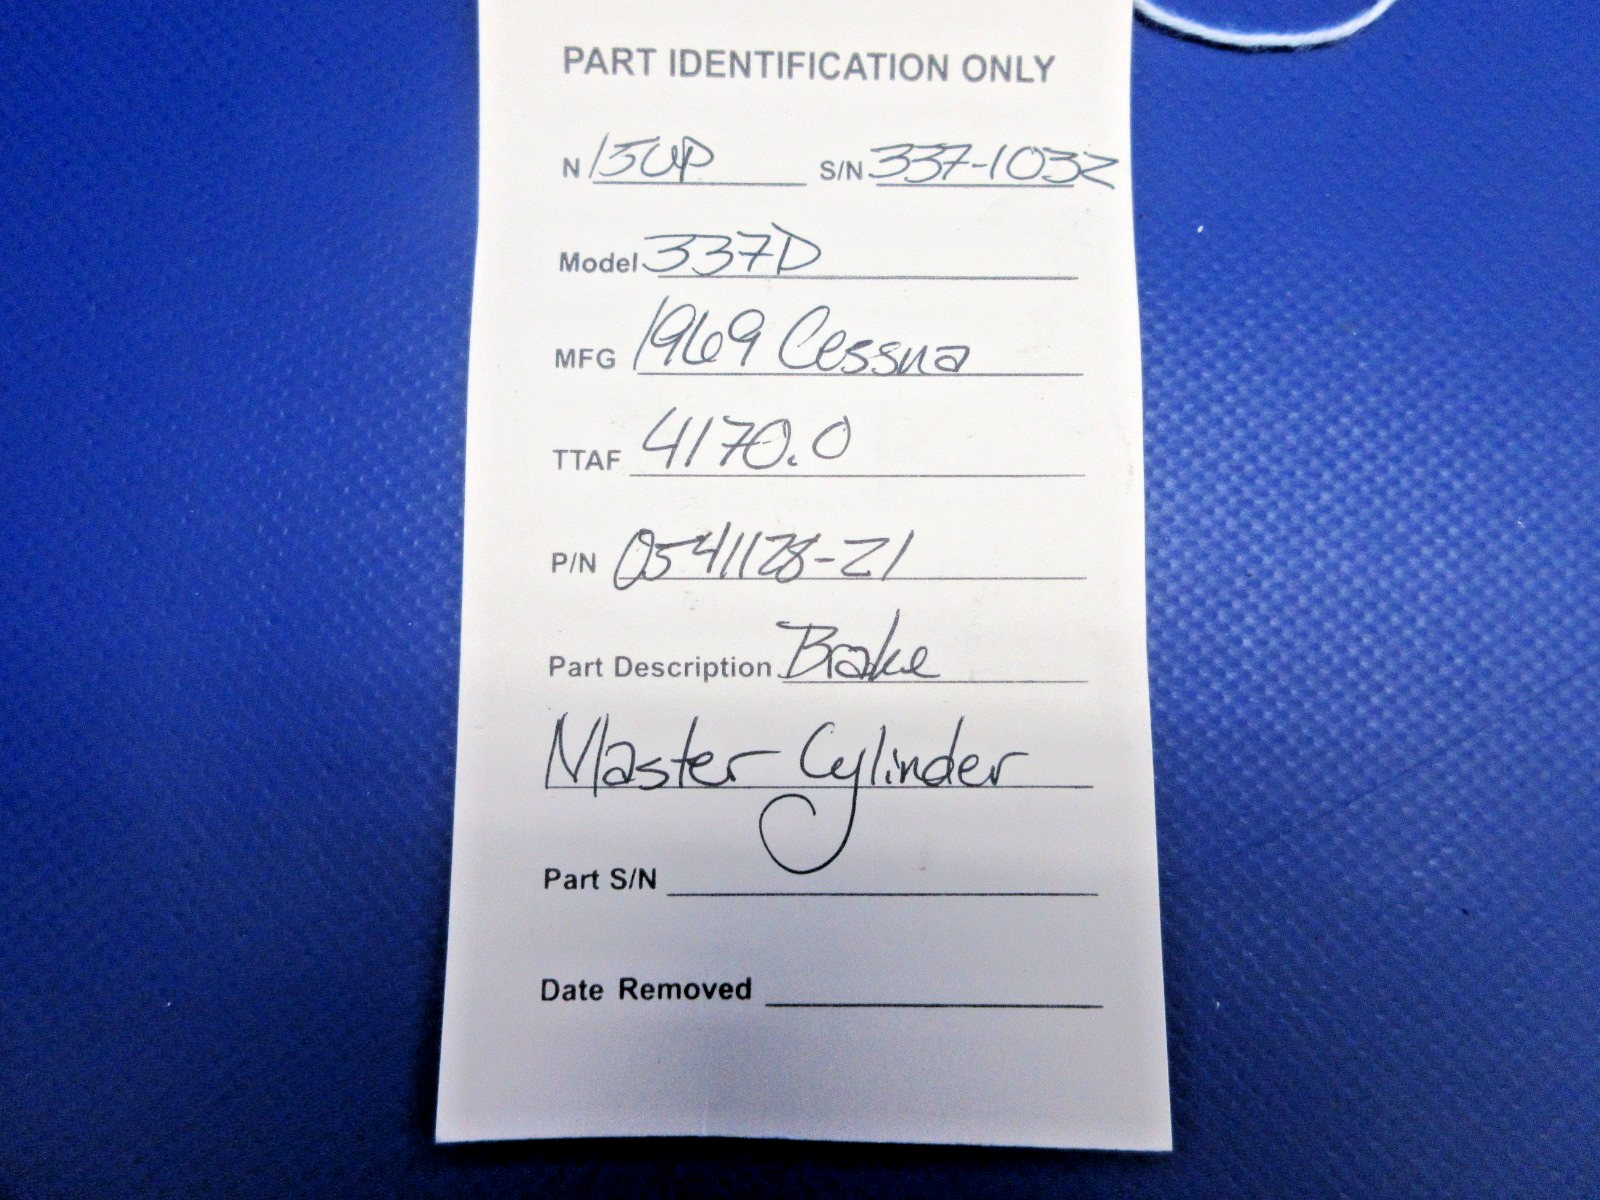 PART IDENTIFICATION ONLY
N 15UP S/N 337-1032
Model 337D
MFG 1969 Cessna
TTAF 4170.0
P/N 0541128-21
Part Description Brake
Master Cylinder
Part S/N
Date Removed